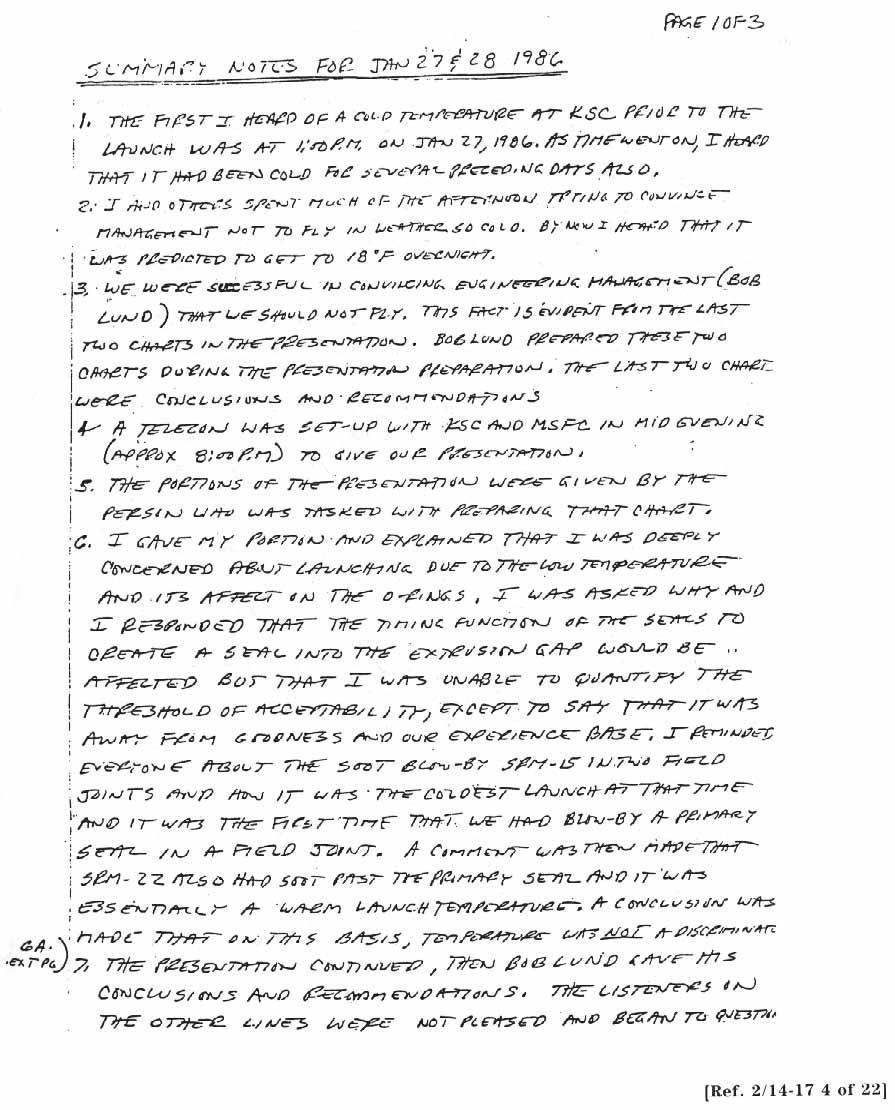 PAGE 1 OF 3
SUMMARY NOTES FOR JAN 27 & 28 1986
1. THE FIRST I HEARD OF A COLD TEMPERATURE AT KSC PRIOR TO THE
LAUNCH WAS AT 1:00 P.M. ON JAN 27, 1986. AS TIME WENT ON, I HEARD
THAT IT HAD BEEN COLD FOR SEVERAL PRECEDING DAYS ALSO.
2. I AND OTHERS SPENT MUCH OF THE AFTERNOON TRYING TO CONVINCE
MANAGEMENT NOT TO FLY IN WEATHER SO COLD. BY NOW I HEARD THAT IT
WAS PREDICTED TO GET TO 18°F OVERNIGHT.
3. WE WERE SUCCESSFUL IN CONVINCING ENGINEERING MANAGEMENT (BOB
LUND) THAT WE SHOULD NOT FLY. THIS FACT IS EVIDENT FROM THE LAST
TWO CHARTS IN THE PRESENTATION. BOB LUND PREPARED THESE TWO
CHARTS DURING THE PRESENTATION PREPARATION. THE LAST TWO CHART
WERE CONCLUSIONS AND RECOMMENDATIONS
4 A TELECON WAS SET-UP WITH KSC AND MSFC IN MID EVENING
(APPROX 8:00 P.M) TO GIVE OUR PRESENTATION.
5. THE PORTIONS OF THE PRESENTATION WERE GIVEN BY THE
PERSON WHO WAS TASKED WITH PREPARING THAT CHART.
6. I GAVE MY PORTION AND EXPLAINED THAT I WAS DEEPLY
CONCERNED ABOUT LAUNCHING DUE TO THE LOW TEMPERATURE
AND ITS AFFECT ON THE O-RINGS. I WAS ASKED WHY AND
I RESPONDED THAT THE TIMING FUNCTION OF THE SEALS TO
CREATE A SEAL INTO THE EXTRUSION GAP WOULD BE
AFFECTED BUT THAT I WAS UNABLE TO QUANTIFY THE
THRESHOLD OF ACCEPTABILITY, EXCEPT TO SAY THAT IT WAS
AWAY FROM GOODNESS AND OUR EXPERIENCE BASE. I REMINDED
EVERYONE ABOUT THE SOOT BLOW-BY SRM-15 IN TWO FIELD
JOINTS AND HOW IT WAS THE COLDEST LAUNCH AT THAT TIME
AND IT WAS THE FIRST TIME THAT WE HAD BLOW-BY A PRIMARY
SEAL IN A FIELD JOINT. A COMMENT WAS THEN MADE THAT
SRM-22 ALSO HAD SOOT PAST THE PRIMARY SEAL AND IT WAS
ESSENTIALLY A WARM LAUNCH TEMPERATURE. A CONCLUSION WAS
MADE THAT ON THIS BASIS, TEMPERATURE WAS NOT A DISCRIMINATO
6A.
EXT PG) 7. THE PRESENTATION CONTINUED, THEN BOB LUND GAVE HIS
CONCLUSIONS AND RECOMMENDATIONS. THE LISTENERS ON
THE OTHER LINES WERE NOT PLEASED AND BEGAN TO QUESTION
[Ref. 2/14-17 4 of 22]